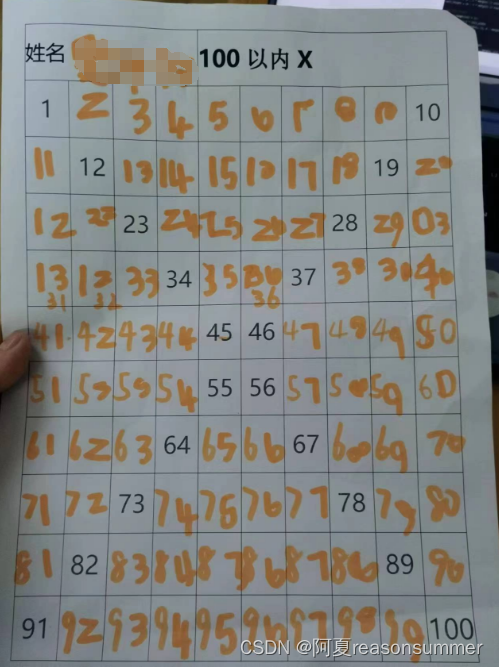 姓名 100 以内 X
1 2 3 4 5 6 10
11 12 13 14 15 17 18 19 20
12 22 23 24 25 26 27 28 29 03
13 12 33 34 35 36 37 38 30 40
31 32 36
41 42 43 44 45 46 47 48 49 50
51 54 55 56 57 59 60
61 62 63 64 65 66 67 68 69 70
71 72 73 74 75 76 77 78 79 80
81 82 83 84 87 86 87 86 89 90
91 92 93 94 95 96 97 98 99 100
CSDN @阿夏reasonsummer